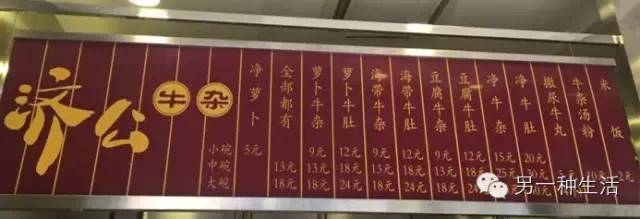 济公牛杂
净萝卜
全部都有
萝卜牛杂
萝卜牛肚
海带牛杂
海带牛肚
豆腐牛杂
豆腐牛肚
净牛杂
净牛肚
撒尿牛丸
牛杂汤粉
米饭
小碗 5元 9元 12元 9元 12元 9元 12元 15元 20元
中碗 13元 13元 18元 13元 18元 13元 18元
大碗 18元 18元 24元 18元 24元 18元 24元
另一种生活